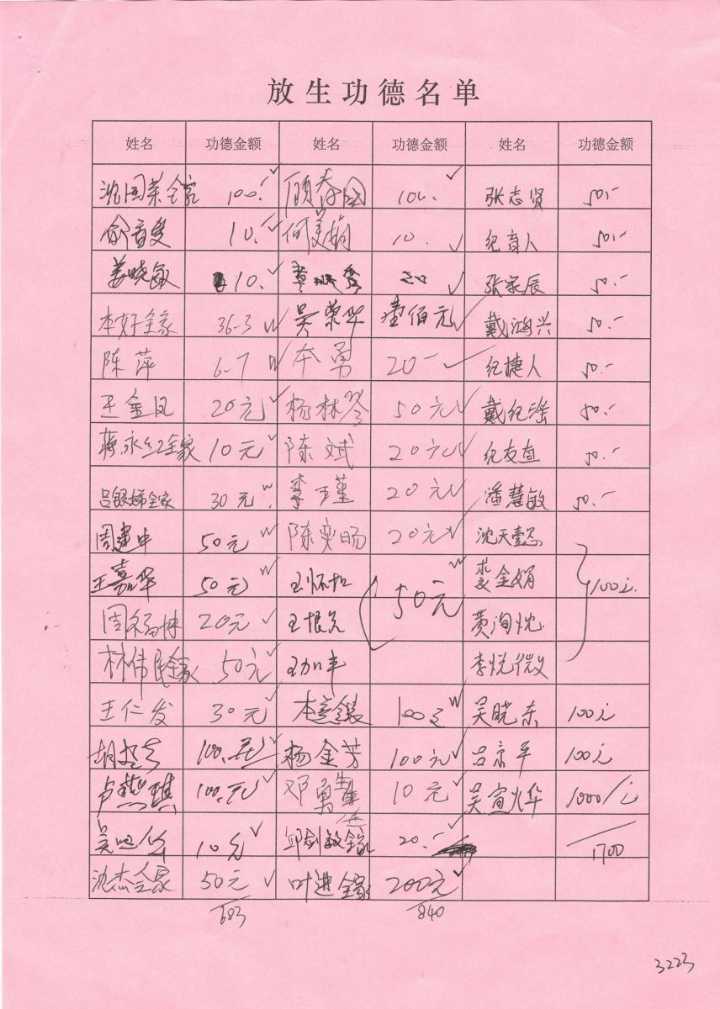 放生功德名单
姓名 功德金额 姓名 功德金额 姓名 功德金额
沈国荣全家 100.- 顾春国 100.- 张志贤 50.-
俞首叟 10.- 何美娟 10. 纪育人 50.-
姜晓敏 10.- 20 张家辰 50.-
本好全家 36.3 吴荣华 壹佰元 戴鸿兴 50.-
陈萍 6.7 本勇 20- 纪捷人 50.-
王金凤 20元 杨林琴 50元 戴纪瑶 50.-
蒋永红全家 10元 陈斌 20元 纪友直 50.-
吕银娣全家 30元 李瑾 20元 潘慧敏 50.-
周建中 50元 陈奕旸 20元 沈天懿
王嘉华 50元 王怀加 50元 裘金娟 100元
周福坤 20元 王恨先 黄洵忱
林伟民全家 50元 王加丰 李悦微
王仁发 30元 100元 吴晓东 100元
100元 杨金芳 100元 吕京平 100元
卢燕琪 100元 邓勇 10元 吴宣华 1000/元
10元 邱剑敏全家 20.- 1700
沈杰全家 50元 叶进全家 200元
683 840
3223